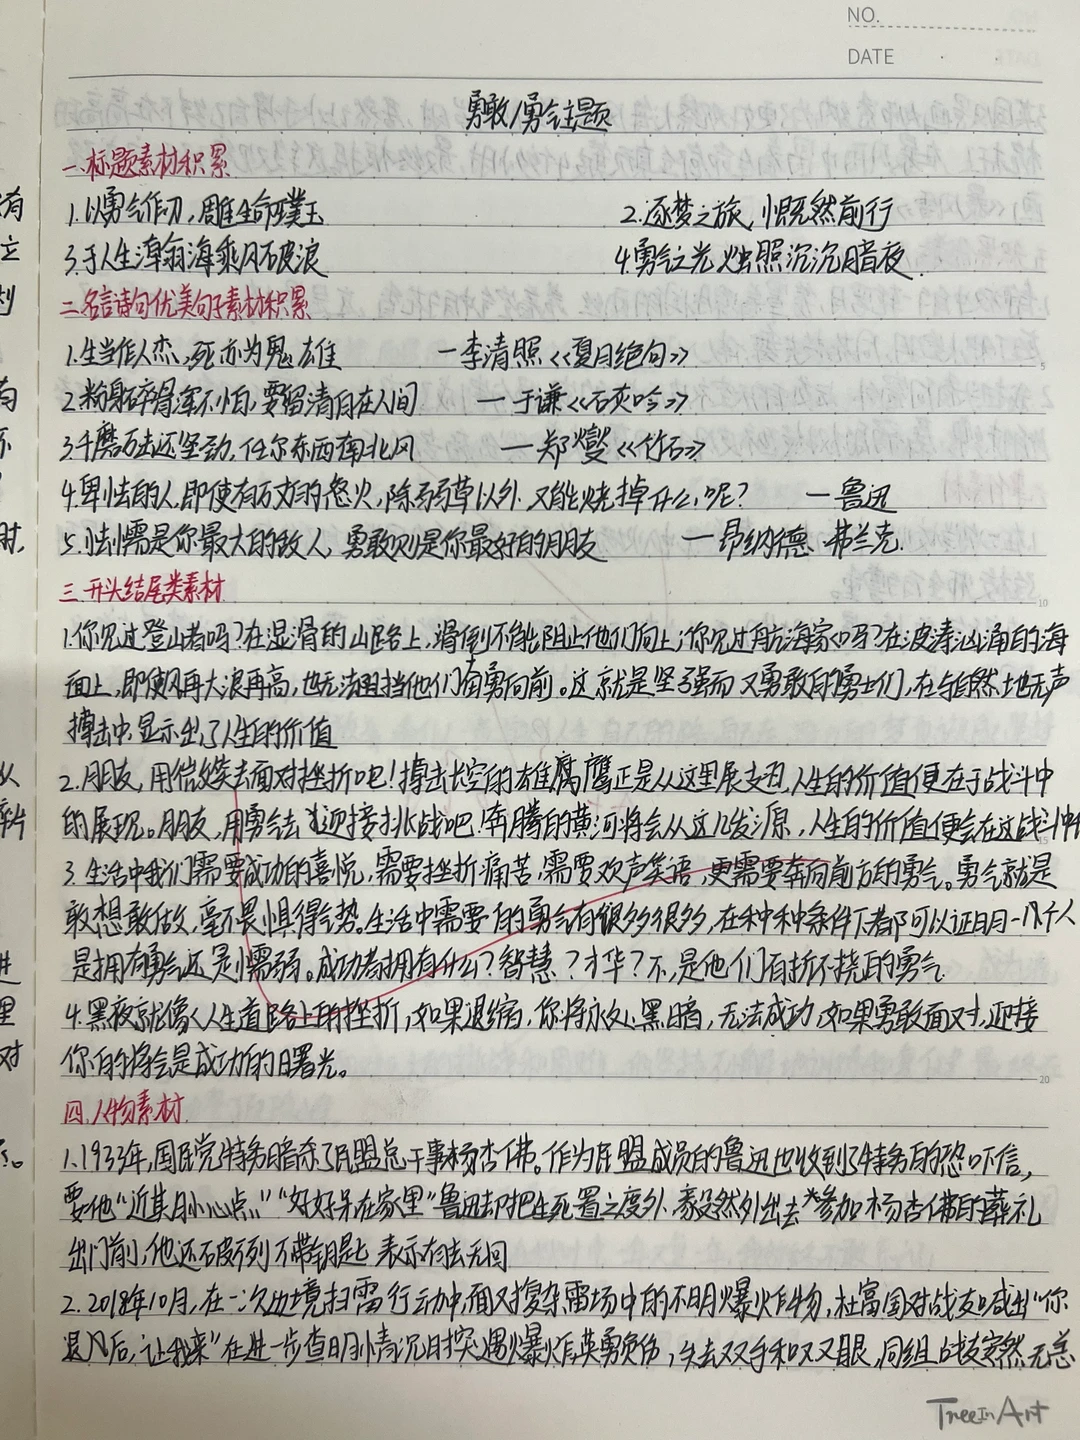 NO.
DATE
勇敢/勇气主题
一.标题素材积累
1.以勇气作刀,雕生命璞玉 2.逐梦之旅,慨然前行
3.于人生瀚海乘风破浪 4.勇气之光烛照沉沉暗夜
二.名言诗句优美句子素材积累
1.生当作人杰,死亦为鬼雄 —李清照《夏日绝句》
2.粉身碎骨浑不怕,要留清白在人间 —于谦《石灰吟》
3.千磨万击还坚劲,任尔东西南北风 —郑燮《竹石》
4.卑怯的人,即使有万丈的怒火,除弱草以外,又能烧掉什么呢? —鲁迅
5.怯懦是你最大的敌人,勇敢则是你最好的朋友 —昂纳德·弗兰克.
三.开头结尾类素材
1.你见过登山者吗?在湿滑的山路上,滑倒不能阻止他们向上;你见过航海家吗?在波涛汹涌的海
面上,即使风再大浪再高,也无法阻挡他们奋勇向前。这就是坚强而又勇敢的勇士们,在与自然地无声
搏击中,显示出了人生的价值
2.朋友,用微笑去面对挫折吧!搏击长空的雄鹰正是从这里展翅,人生的价值便在于战斗中
的展现。朋友,用勇气去迎接挑战吧!奔腾的黄河将会从这儿发源,人生的价值便会在这战斗中
3.生活中我们需要成功的喜悦,需要挫折痛苦,需要欢声笑语,更需要奔向前方的勇气。勇气就是
敢想敢做,毫不畏惧得气势。生活中需要的勇气有很多很多,在种种条件下都可以证明一个人
是拥有勇气还是懦弱。成功者拥有什么?智慧?才华?不,是他们百折不挠的勇气
4.黑夜就像人生道路上的挫折,如果退缩,你将永处黑暗,无法成功,如果勇敢面对,迎接
你的将会是成功的曙光。
四.人物素材
1.1933年,国民党特务暗杀了民盟总干事杨杏佛。作为民盟成员的鲁迅也收到了特务的恐吓信,
要他“近其月小心点”“好好呆在家里”鲁迅却把生死置之度外,毅然外出去参加杨杏佛的葬礼
出门前,他还破例不带钥匙,表示有去无回
2.2018年10月,在一次边境扫雷行动中,面对复杂雷场中的不明爆炸物,杜富国对战友喊出“你
退后,让我来”在进一步查明情况时突遇爆炸,英勇负伤,失去双手和双眼,同组战友安然无恙
TreeInArt